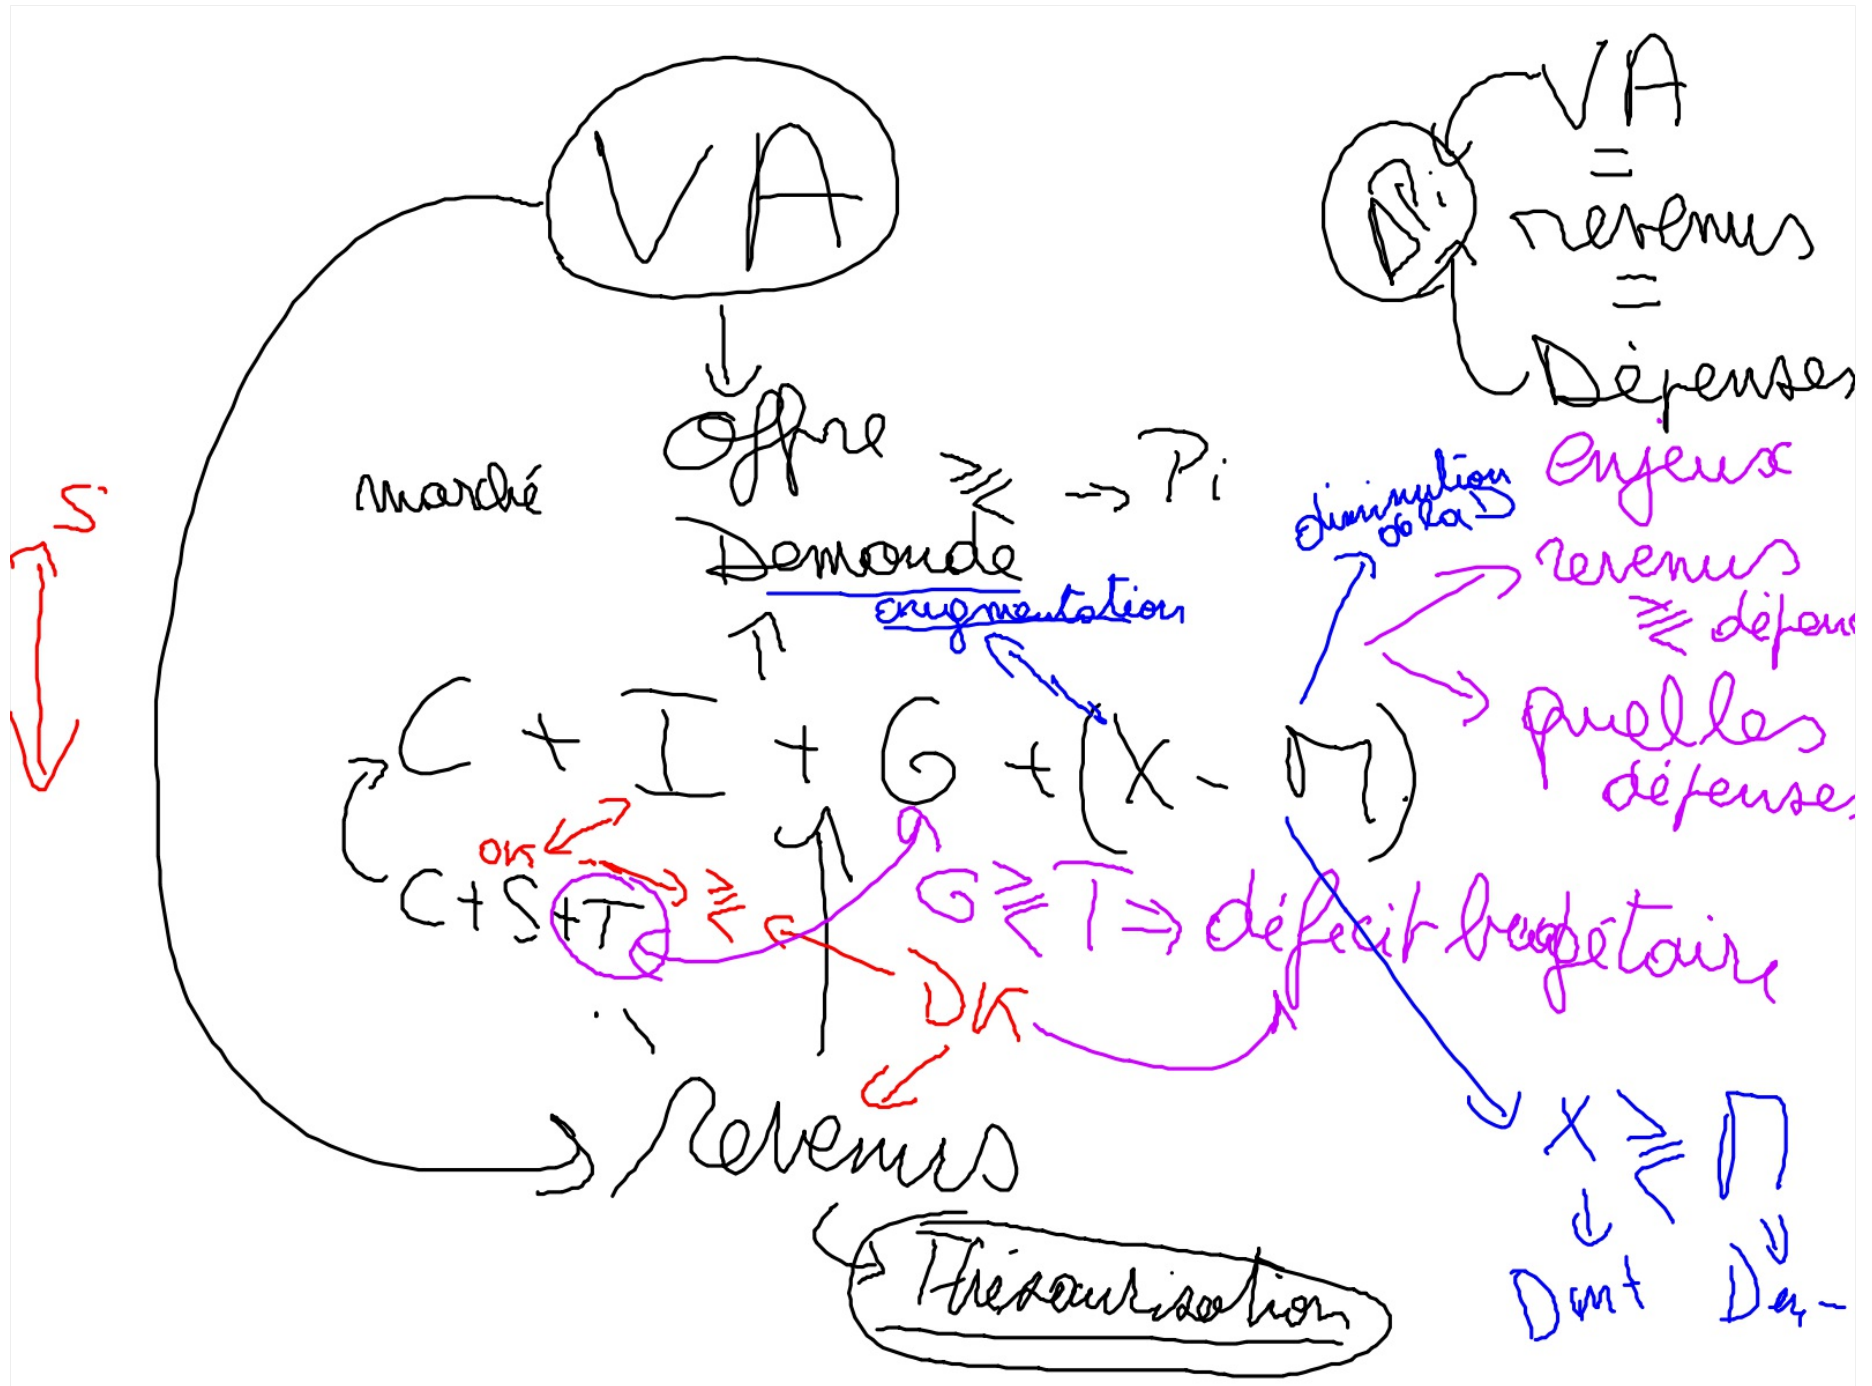 VA
VA
=
revenus
=
Dépenses
Offre
marché
≥
≤
→ Pi
Demande
augmentation
diminution
de la D
enjeux
revenus
≥
≤ dépens
quelles
dépenses
S
C + I + G + (X - M)
OK
C+S+T
≥
≤
G ≥ T ⇒ déficit budgétaire
DK
Revenus
Thésaurisation
X ≥ M
≤